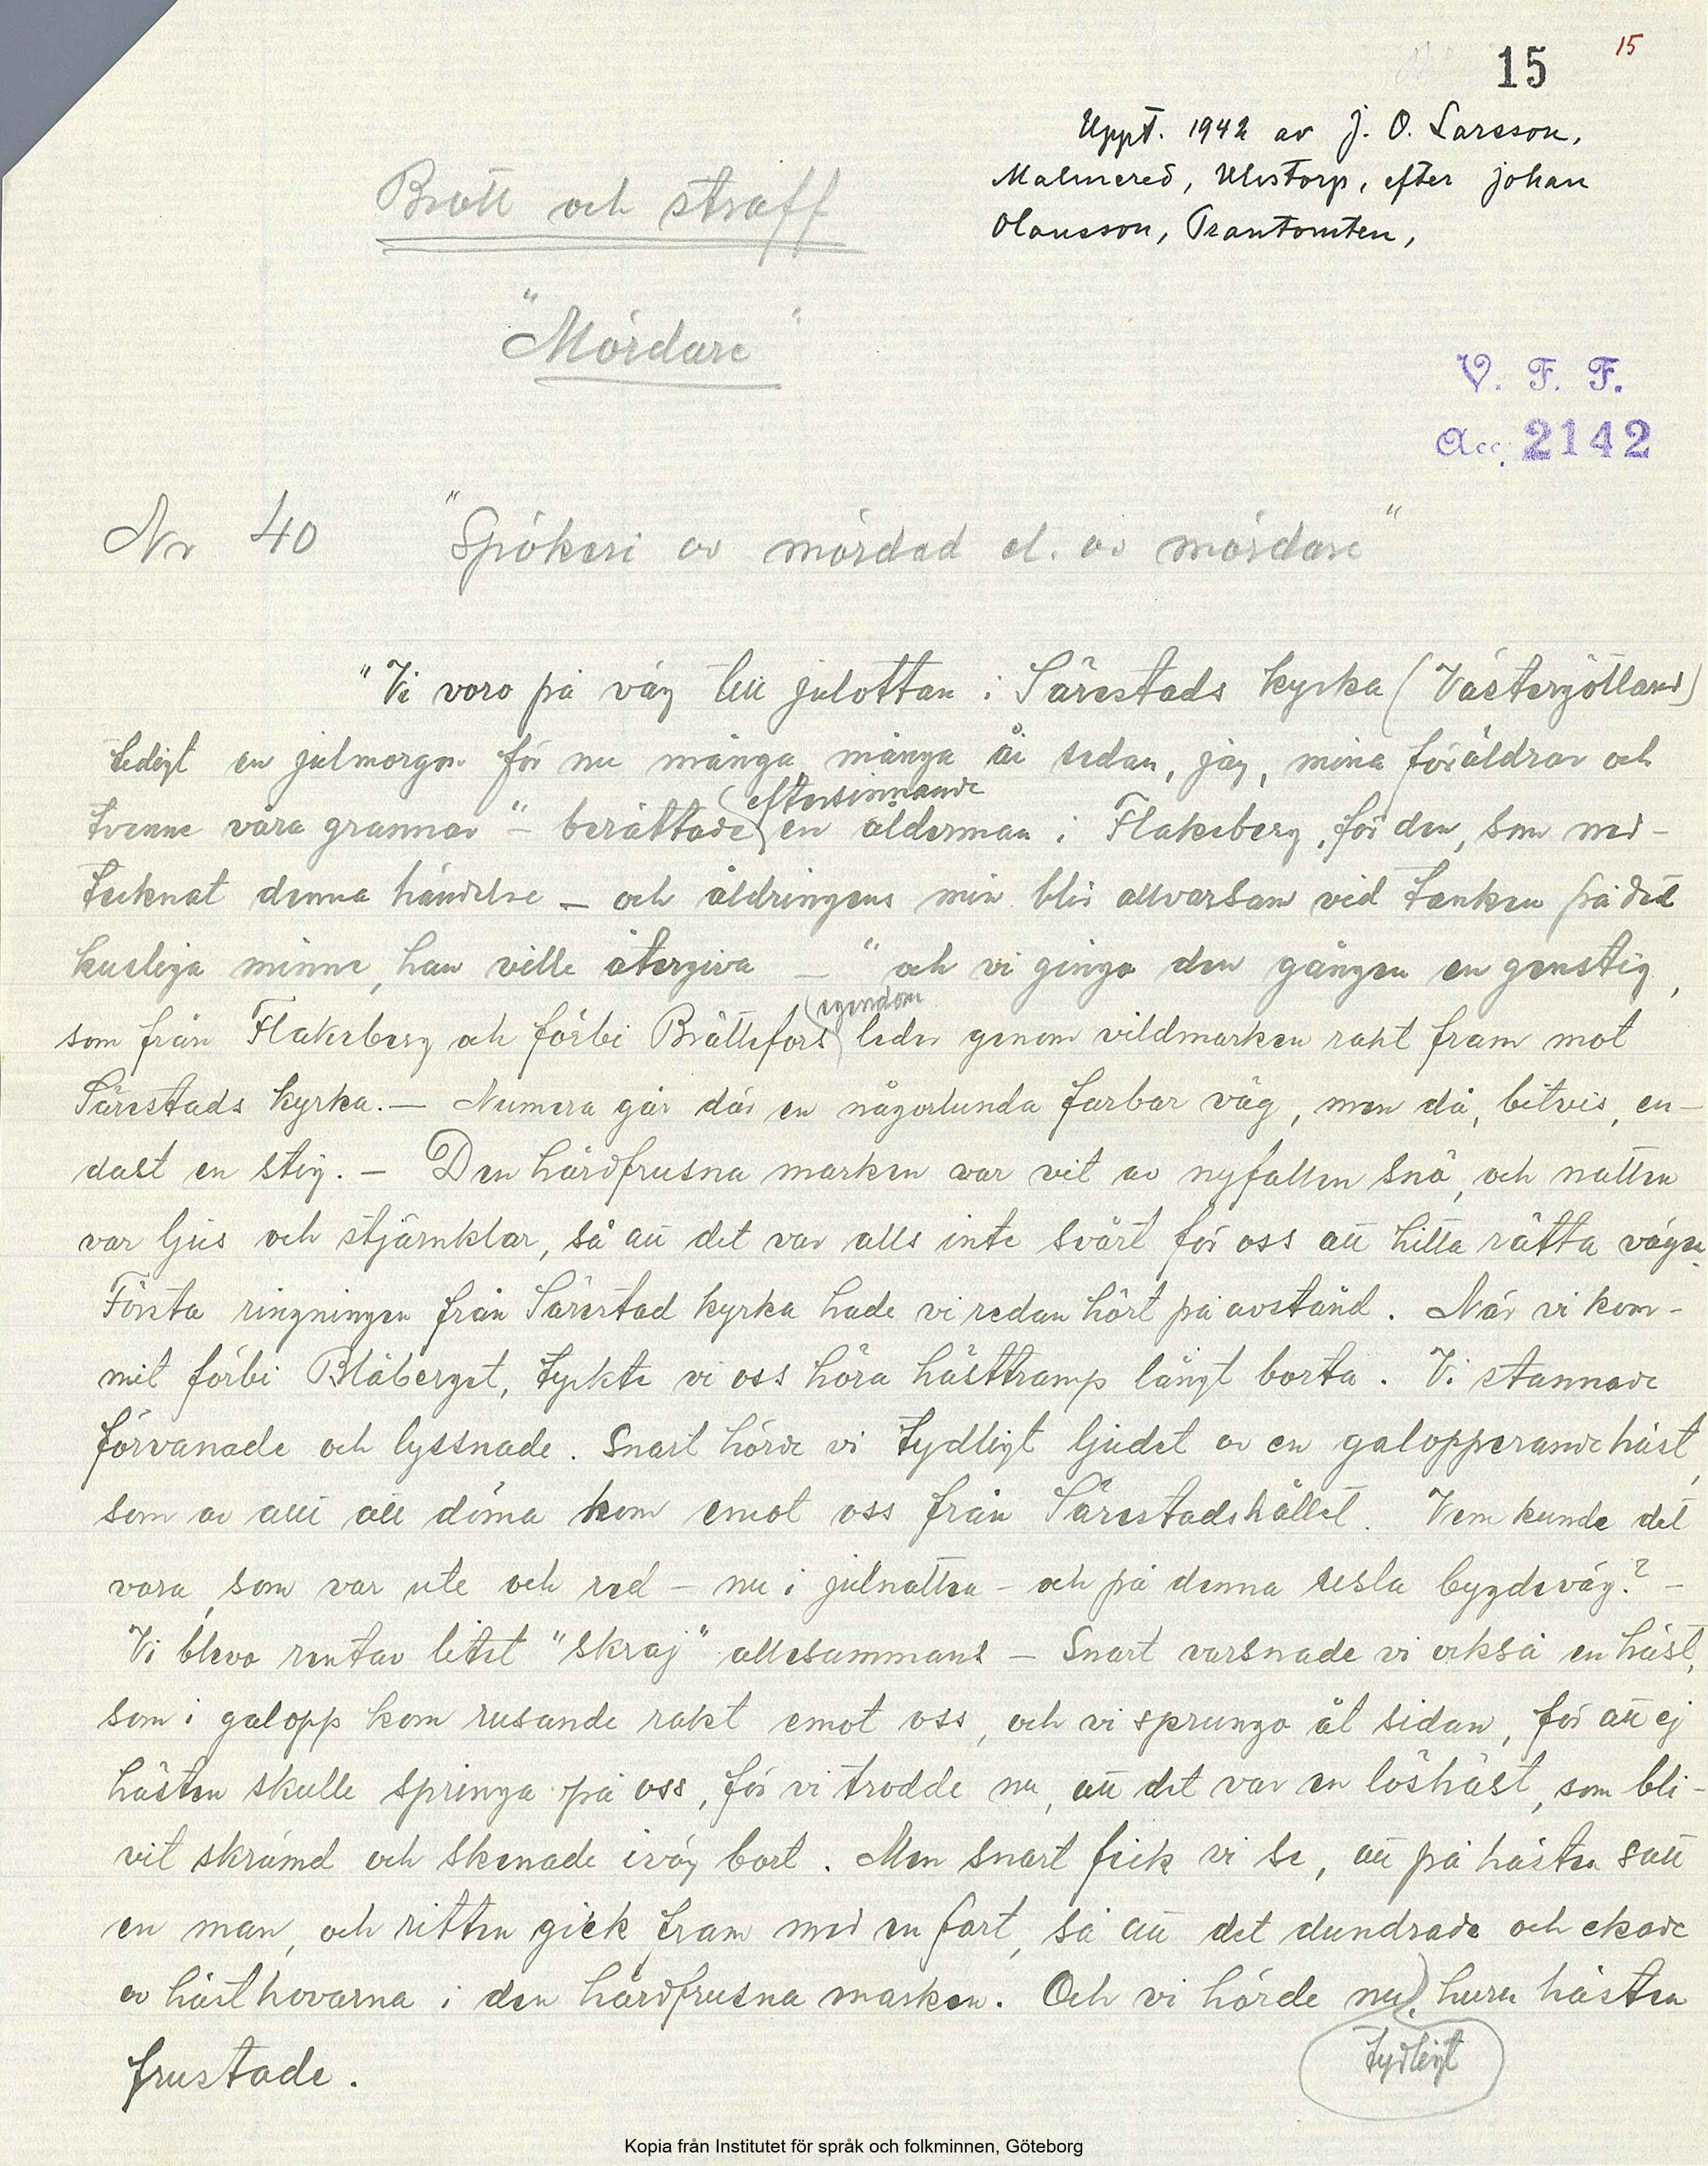 15
15
Uppt. 1942 av J. O. Larsson,
Malmered, Ulvstorp, efter Johan
Olausson, Trantomten,
Brott och straff
"Mördare"
V. F. F.
Acc. 2142
Nr 40 "Spökeri av mördad el. av mördare"
"Vi voro på väg till julottan i Särestads kyrka (Västergötland)
tidigt en julmorgon för nu många, många år sedan, jag, mina föräldrar och
eftersinnande
tvenne våra grannar" – berättade en ålderman i Flakeberg, för den, som ned-
tecknat denna händelse – och åldringens min blir allvarsam vid tanken på det
kusliga minne, han ville återgiva – "och vi gingo den gången en genstig,
egendom
som från Flakeberg och förbi Brättefors leder genom vildmarken rakt fram mot
Särestads kyrka. – Numera går där en någorlunda farbar väg, men då, bitvis, en-
dast en stig. – Den hårdfrusna marken var vit av nyfallen snö, och natten
var ljus och stjärnklar, så att det var alls inte svårt för oss att hitta rätta vägen.
Första ringningen från Särestad kyrka hade vi redan hört på avstånd. När vi kom-
mit förbi Blåberget, tyckte vi oss höra hästtramp långt borta. Vi stannade
förvånade och lyssnade. Snart hörde vi tydligt ljudet av en galopperande häst,
som av allt att döma kom emot oss från Särestadshållet. Vem kunde det
vara, som var ute och red – nu i julnatten – och på denna usla bygdeväg? –
Vi blevo rentav litet "skraj" allesammans – Snart varsnade vi också en häst,
som i galopp kom rusande rakt emot oss, och vi sprungo åt sidan, för att ej
hästen skulle springa på oss, för vi trodde nu, att det var en löshäst, som bli-
vit skrämd och skenade iväg bort. Men snart fick vi se, att på hästen satt
en man, och ritten gick fram med en fart, så att det dundrade och ekade
av hästhovarna i den hårdfrusna marken. Och vi hörde nu, huru hästen
tydligt
frustade.
Kopia från Institutet för språk och folkminnen, Göteborg